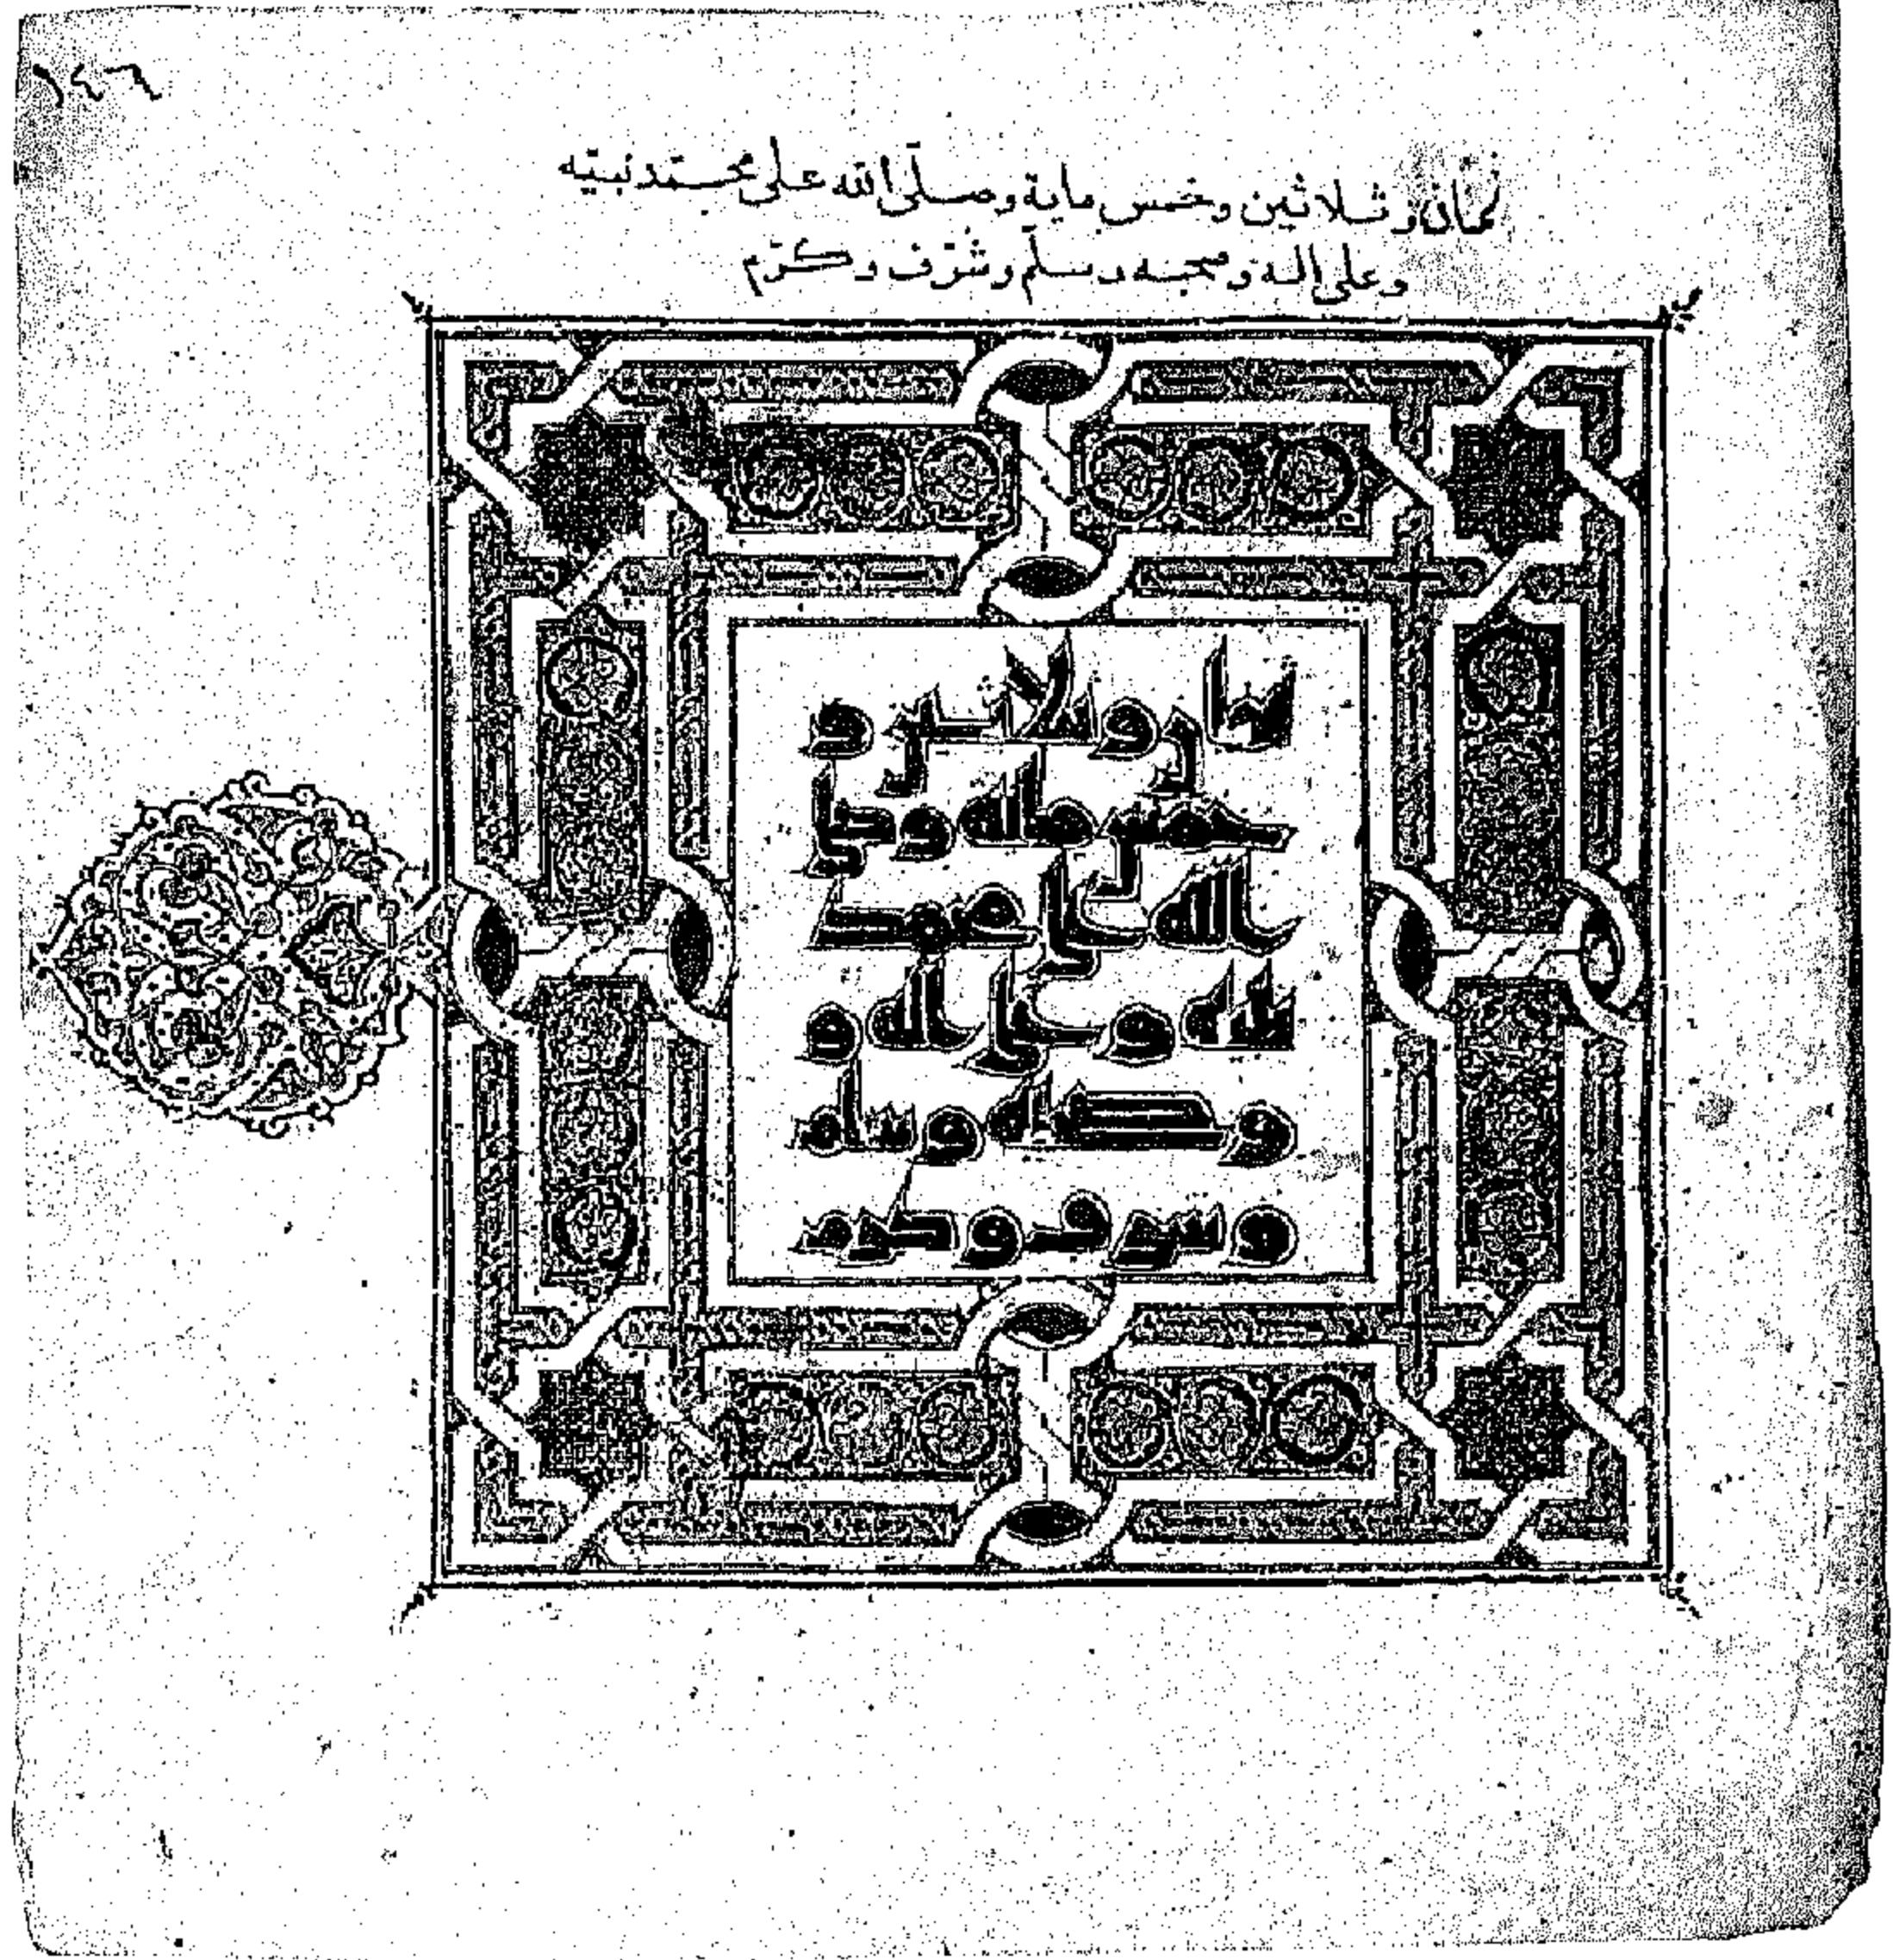 ١٤٦
ثمان وثلاثين وخمس ماية وصلى الله على محمد نبيه
وعلى اله وصحبه وسلم وشرف وكرم
ثمان وثلاثين و
خمس مائه وصلى
الله على محمد
نبيه وعلى اله و
وصحبه وسلم
وشرف وكرم